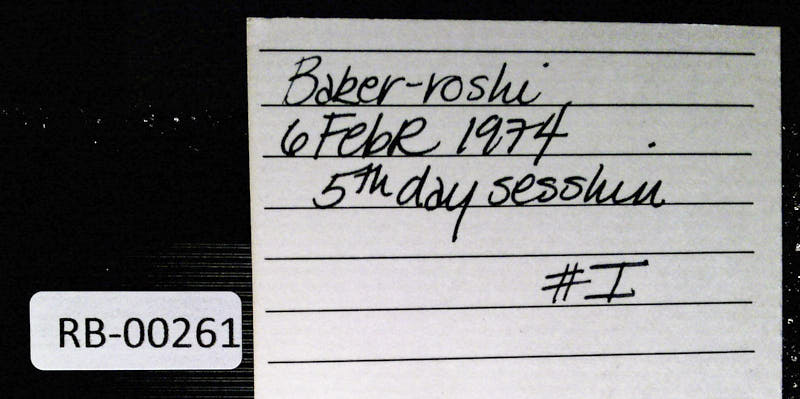 Baker-roshi
6 FebR 1974
5th day sesshin
#I
RB-00261